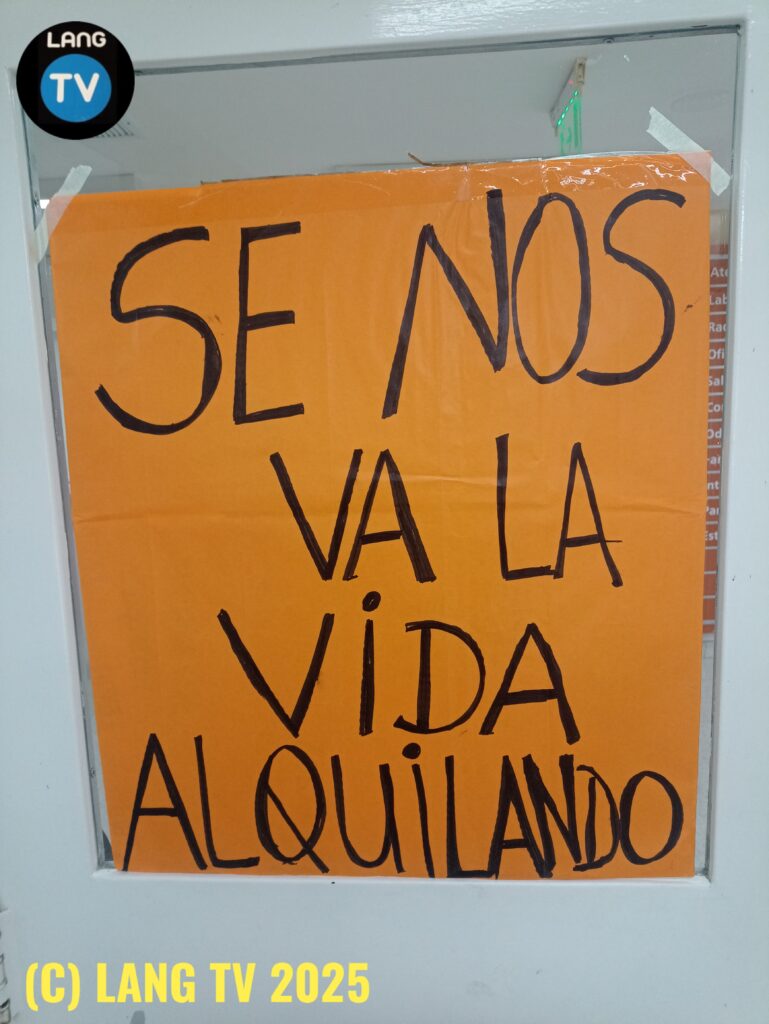 LANG
TV
SE NOS
VA LA
ViDA
ALQUiLANDO
(C) LANG TV 2025